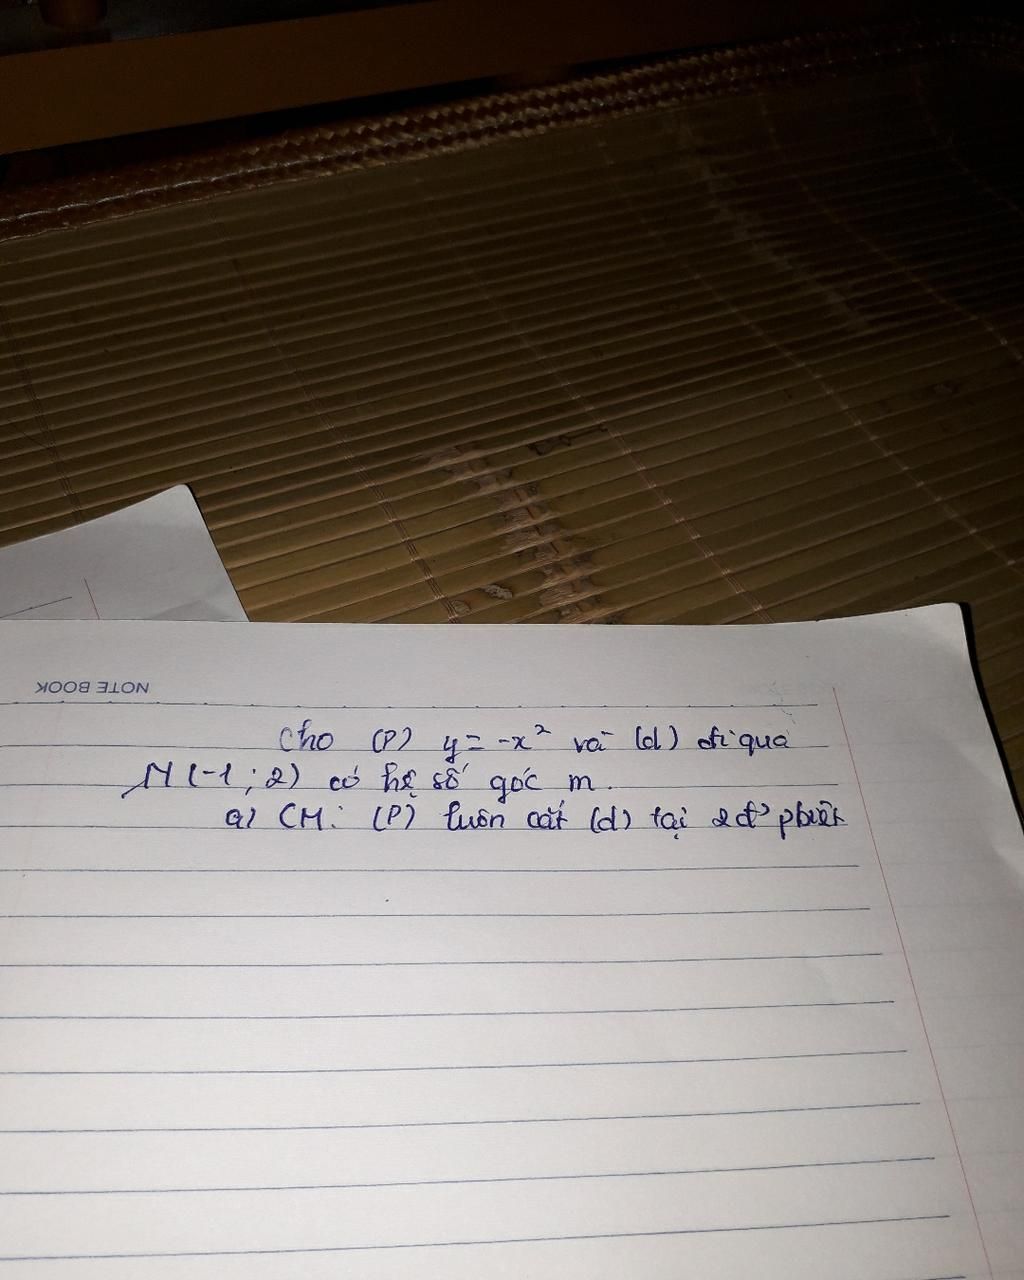 NOTE BOOK
Cho (P) y = -x² và (d) đi qua
M(-1; 2) có hệ số góc m.
a) CM: (P) luôn cắt (d) tại 2đ' phbiệt